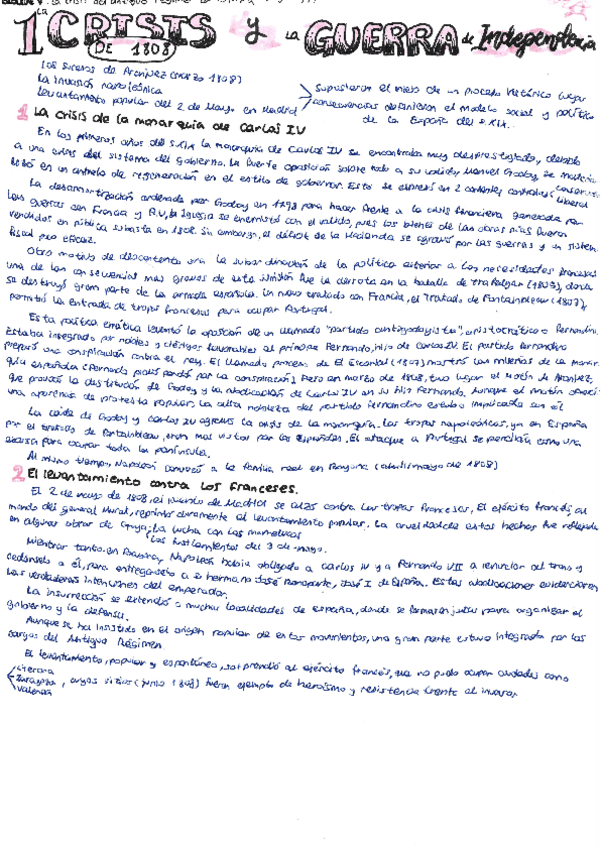 1 La CRISIS DE 1808 y la GUERRA de Independencia
Los sucesos de Aranjuez (marzo 1808)
La invasión napoleónica
Levantamiento popular del 2 de Mayo en Madrid
Supusieron el inicio de un proceso histórico cuyas
consecuencias definieron el modelo social y político
de la España del S.XIX.
1 La crisis de la monarquía de Carlos IV
En los primeros años del S.XIX la monarquía de Carlos IV se encontraba muy desprestigiada, debido
a una crisis del sistema del Gobierno. La fuerte oposición sobre todo a su valido, Manuel Godoy, se
en un anhelo de regeneración en el estilo de gobernar. Esta se expresó en 2 corrientes contrarias
liberal
La desamortización ordenada por Godoy en 1798 para hacer frente a la crisis financiera generada por
las guerras con Francia y R.U, la Iglesia se enemistó con el valido, pues los bienes de las obras pías fueron
vendidos en pública subasta en 1808. Sin embargo, el déficit de la Hacienda se agravó por las guerras y un sistema
fiscal poco eficaz.
Otro motivo de descontento era la subordinación de la política exterior a los necesidades francesas
una de las consecuencias mas graves de esta unión fue la derrota en la batalla de Trafalgar (1805), donde
se destruyó gran parte de la armada española. Un nuevo tratado con Francia, el Tratado de Fontainebleau (1807),
permitió la entrada de tropas francesas para ocupar Portugal.
Esta política errática levantó la oposición de un llamado "partido antigodoyista", aristocrático o Fernandino.
Estaba integrado por nobles y clérigos favorables al príncipe Fernando, hijo de Carlos IV. El partido fernandino
preparó una conspiración contra el rey. El llamado proceso de El Escorial (1807) mostró las miserias de la monar
quía española (Fernando pidió perdón por la conspiración). Pero en marzo de 1808, tuvo lugar el Motín de Aranjuez,
que provocó la destitución de Godoy y la abdicación de Carlos IV en su hijo Fernando. Aunque el motín
una apariencia de protesta popular, la alta nobleza del partido fernandino estaba implicada en él
La caída de Godoy y Carlos IV agravó la crisis de la monarquía. Las tropas napoleónicas, ya en España
por el tratado de Fontainebleau, eran mal vistas por los españoles. El ataque a Portugal se percibía como una
excusa para ocupar toda la península.
Al mismo tiempo, Napoleón convocó a la familia real en Bayona (abril-mayo de 1808)
2 El levantamiento contra los franceses.
El 2 de mayo de 1808, el pueblo de Madrid se alzó contra las tropas francesas. El ejército francés, al
mando del general Murat, reprimió duramente al levantamiento popular. La crueldad de estos hechos fue reflejada
en algunas obras de Goya: La lucha con los mamelucos
Los fusilamientos del 3 de mayo.
Mientras tanto, en Bayona, Napoleón había obligado a Carlos IV y a Fernando VII a renunciar al trono y
cedérselo a él, para entregárselo a su hermano José Bonaparte, José I de España. Estas abdicaciones evidenciaron
las verdaderas intenciones del emperador.
La insurrección se extendió a muchas localidades de España, donde se formaron juntas para organizar el
gobierno y la defensa.
Aunque se ha insistido en el origen popular de estos movimientos, una gran parte estuvo integrada por los
cargos del Antiguo Régimen
El levantamiento, popular y espontáneo, sorprendió al ejército francés, que no pudo ocupar ciudades como
Gerona
Zaragoza, cuyos sitios (junio 1808) fueron ejemplo de heroísmo y resistencia frente al invasor
Valencia